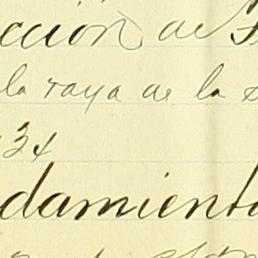 cción de F
la raya de la s
34
damiento